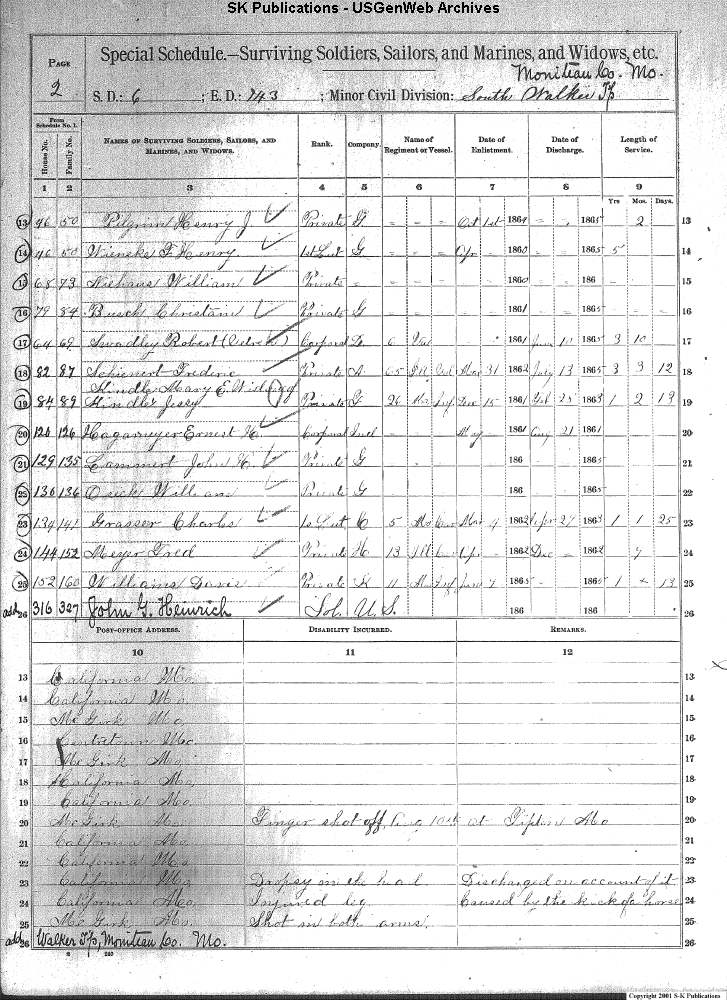 SK Publications - USGenWeb Archives
PAGE 2
Special Schedule.—Surviving Soldiers, Sailors, and Marines, and Widows, etc.
Moniteau Co. Mo.
S. D.: 6 ; E. D.: 243 ; Minor Civil Division: South Walker Tp
From Schedule No. 1.
House No. Family No. NAMES OF SURVIVING SOLDIERS, SAILORS, AND MARINES, AND WIDOWS. Rank. Company. Name of Regiment or Vessel. Date of Enlistment. Date of Discharge. Length of Service.
1 2 3 4 5 6 7 8 9
Yrs Mos. Days.
13 46 50 Pilgrim Henry J Private G " " " Oct 1st 1864 " " 1865 2 13
14 46 50 Wieneke F. Henry 1st Lieut G " " " Apr " 1860 1865 5 14
15 68 73 Niehaus William Private " 1860 186 15
16 79 84 Busch Christian Private G 1861 1865 16
17 64 69 Swadley Robert Corporal 6 1861 June 10 1865 3 10 17
18 82 87 Schienert Frederic Private A. 65 Ill Mar 31 1862 July 13 1865 3 3 12 18
Kindle Mary E. Widow of
19 84 89 Kindle Jessy Private 26 Mo Inf Dec 15 1861 Feb 25 1863 1 2 19 19
20 126 126 Hagameyer Ernest H. Corporal Ind May 1861 Aug 21 1861 20
21 129 135 Lammert John H. Private G 186 1865 21
22 130 136 William Private G 186 1865 22
23 134 141 Grasser Charles 1s Lieut C 5 Mo Cav Mar 4 1862 Apr 27 1863 1 1 25 23
24 144 152 Meyer Fred Private H 13 Ill Cav Apr 1862 Dec 1862 7 24
25 152 160 Williams Davie Private K 11 Inf June 7 1865 1865 1 13 25
add 26 316 327 John G. Heinrich Sol. U. S. 186 186 26
POST-OFFICE ADDRESS. DISABILITY INCURRED. REMARKS.
10 11 12
13 California Mo. 13
14 California Mo. 14
15 Mc Girk Mo. 15
16 Centretown Mo. 16
17 Mc Girk Mo. 17
18 California Mo. 18
19 California Mo. 19
20 Mc Girk Mo. Finger shot off, Aug 10th at Tipton Mo 20
21 California Mo. 21
22 California Mo 22
23 California Mo. Dropsy in the head Discharged on account of it 23
24 California Mo. Injured leg. Caused by the kick of a horse 24
25 Mc Girk Mo. Shot in both arms. 25
add 26 Walker Tp, Moniteau Co. Mo. 26
Copyright 2001 S-K Publications